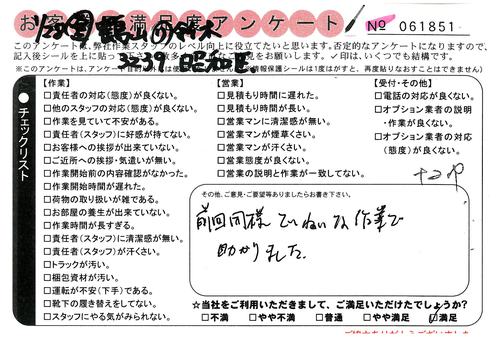 お客様満足度アンケート
№ 061851
このアンケートは、弊社作業スタッフのレベル向上に役立てたいと思います。否定的なアンケートになりますので、
記入後シールを上に貼っ お願いします。✓印は、いくつでも結構です。
※このアンケートは、アンケート 情報保護シールは1度はがすと、再度貼りなおすことはできません
1/31
3239 昭和区
チェックリスト
【作業】
□責任者の対応(態度)が良くない。
□他のスタッフの対応(態度)が良くない。
□作業を見ていて不安がある。
□責任者(スタッフ)に好感が持てない。
□お客様への挨拶が出来ていない。
□ご近所への挨拶・気遣いが無い。
□作業開始前の内容確認がなかった。
□作業開始時間が遅れた。
□荷物の取り扱いが雑である。
□お部屋の養生が出来ていない。
□作業時間が長すぎる。
□責任者(スタッフ)に清潔感が無い。
□責任者(スタッフ)が汗くさい。
□トラックが汚い。
□梱包資材が汚い。
□運転が不安(下手)である。
□靴下の履き替えをしてない。
□スタッフにやる気がみられない。
【営業】
□見積もり時間に遅れた。
□見積もり時間が長い。
□営業マンに清潔感が無い。
□営業マンが煙草くさい。
□営業マンが汗くさい。
□営業態度が良くない。
□営業の説明と作業が一致してない。
【受付・その他】
□電話の対応が良くない。
□オプション業者の説明
・作業が良くない。
□オプション業者の対応
(態度)が良くない。
その他、ご意見・ご要望等ありましたらお書き下さい。
前回同様ていねいな作業で
助かりました。
☆当社をご利用いただきまして、ご満足いただけたでしょうか?
□不満 □やや不満 □普通 □やや満足 ☑満足